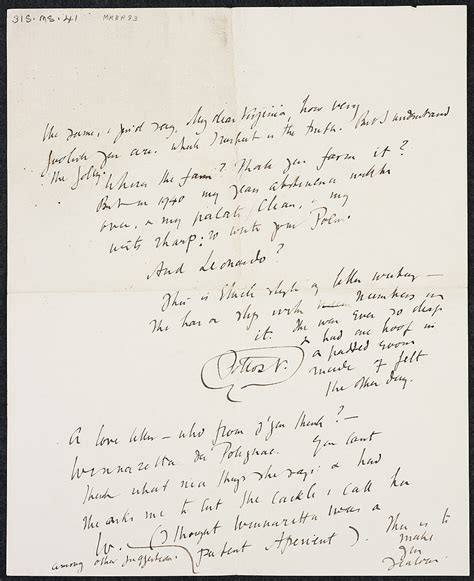 315. MS. 41
MMRH 83
the same, & you'd say, My dear Virginia, how very
foolish you are. which I suspect is the truth. But I understand
the folly.
Where's the farm? Shall you farm it?
But in 1940 my years abstinence will be
over, & my palate clean, & my
wits sharp: to write your Poem.
And Leonardo?
This is Ethel's style of letter writing —
She has a slip with numbers on
it. She was ever so deep
& had one hoof in
a padded room
made of felt
the other day.
Potto's V.
A love letter — who from d'you think? —
Winnaretta de Polignac. You cant
think what nice things she says: & had
She asks me to cut the cackle & call her
W. (I thought Winnaretta was a
patent Aperient). This is to
among other suggestions.
make
you
jealous.